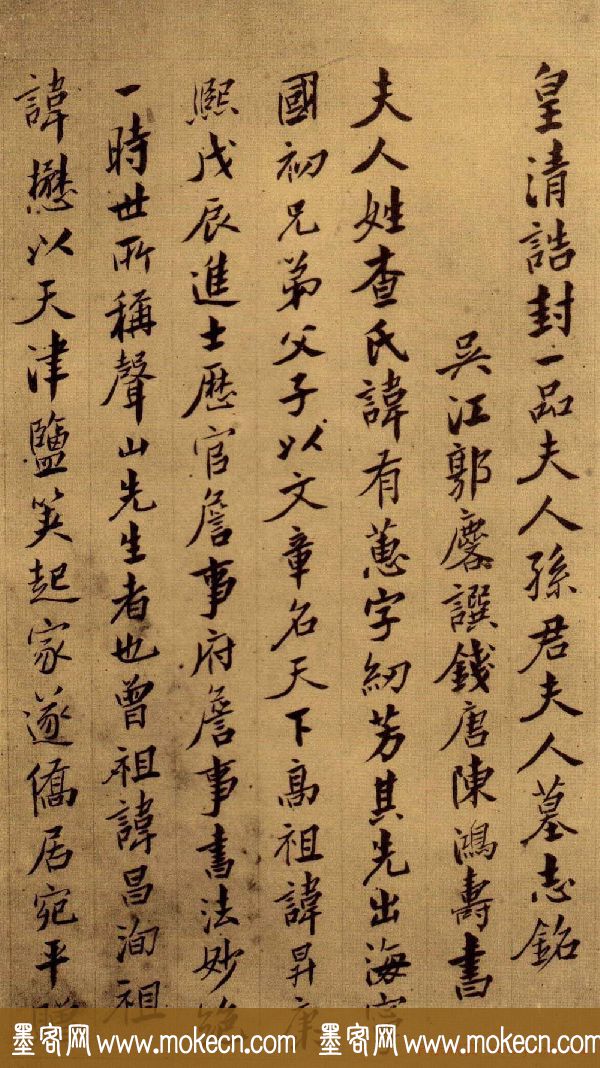 皇清誥封一品夫人孫君夫人墓志銘
吳江郭麐譔錢唐陳鴻壽書
夫人姓查氏諱有蕙字紉芳其先出海寧
國初兄弟父子以文章名天下高祖諱昇康
熙戊辰進士歷官詹事府詹事書法妙絕
一時世所稱聲山先生者也曾祖諱昌洵祖
諱懋以天津鹽筴起家遂僑居宛平
墨客网 www.mokecn.com 墨客网 www.mokecn.com